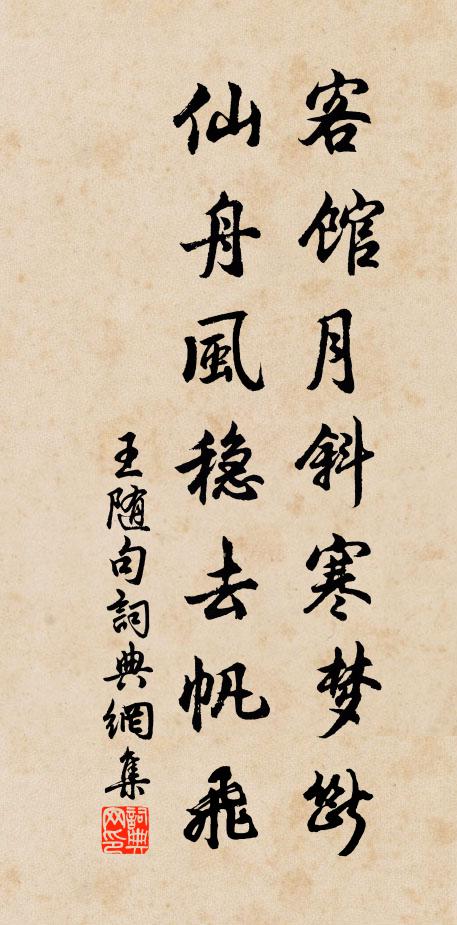 客馆月斜寒梦断
仙舟風稳去帆飛
王随句詞典網集
詞典网印